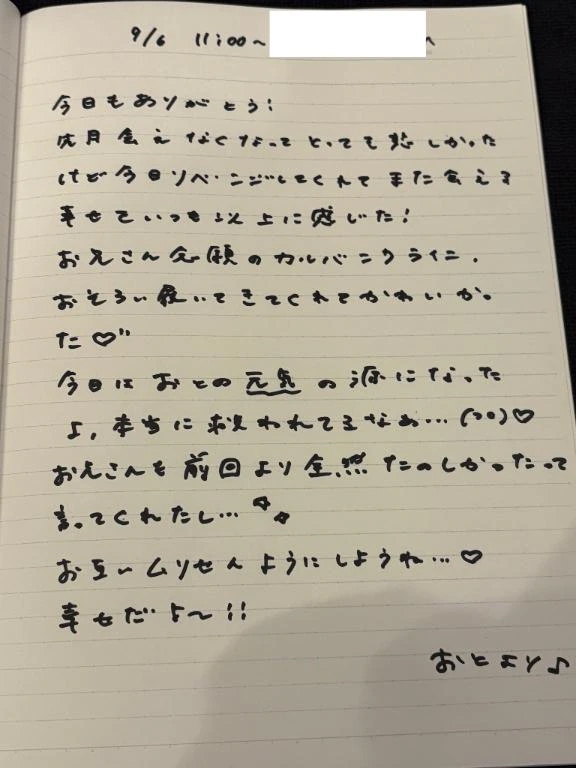 9/6 11:00〜 へ
今日もありがとう!
次月会えなくなってとっても悲しかった
けど今日リベンジしてくれてまた会える
幸せていつも以上に感じた!
お兄さん念願のカルバンクライン、
おそろい履いてきてくれてかわいかっ
た♡"
今日はおとの元気の源になった
よ、本当に救われてるなぁ…(つo)♡
お兄さんも前回より全然たのしかったって
言ってくれたし…
お互いムリせんようにしようね…♡
幸せだよ〜!!
おとより♪